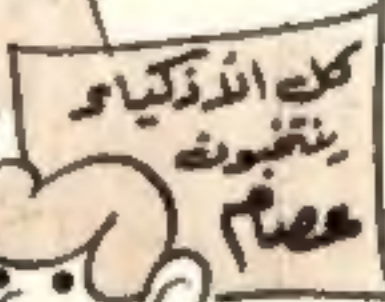 كل الأذكياء
ينتخبون
عصام